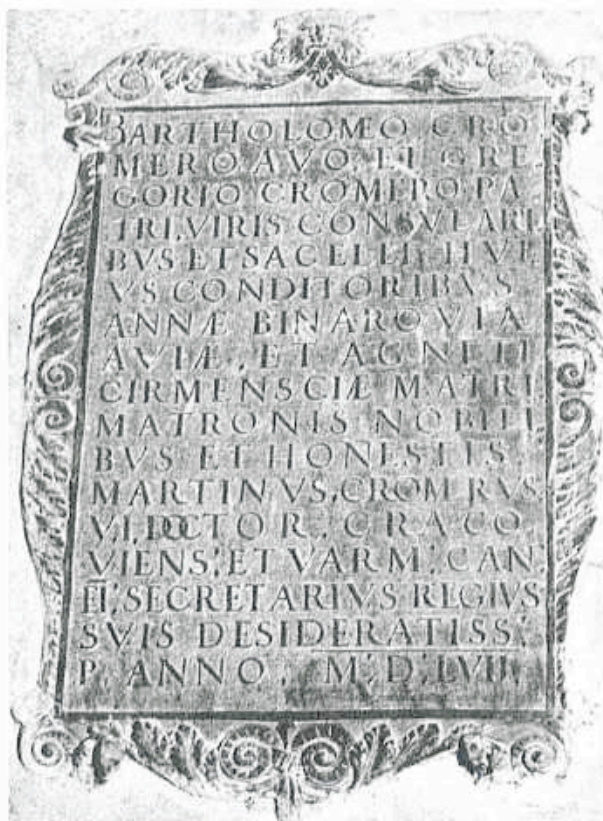 BARTHOLOMEO CRO
MERO AVO. ET GRE
GORIO CROMERO PA
TRI, VIRIS CONSVLARI
BVS ET SACELLI HVI
VS CONDITORIBVS
ANNÆ BINAROVIA
AVIÆ, ET AGNETI
CIRMENSCIÆ MATRI
MATRONIS NOBILI
BVS ET HONESTIS
MARTINVS, CROMERVS
V I, DOCTOR, CRACO
VIENS', ET VARM', CAN'
EI', SECRETARIVS REGIVS
SVIS DESIDERATISS',
P, ANNO, M', D', LVII,